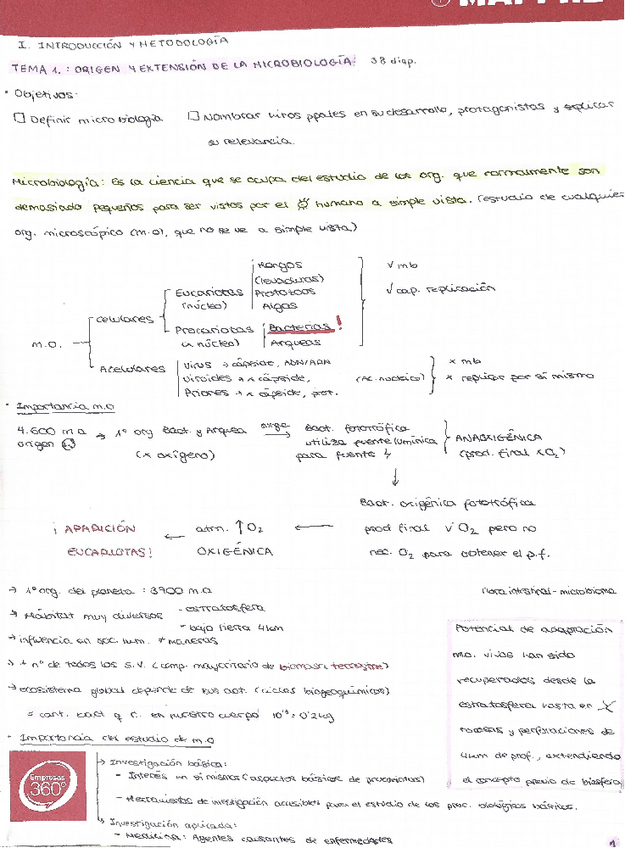 I. INTRODUCCIÓN Y METODOLOGÍA
TEMA 1.: ORIGEN Y EXTENSIÓN DE LA MICROBIOLOGÍA. 38 diap.
· Objetivos:
□ Definir microbiología □ Nombrar viros ppales en su desarrollo, protagonistas y explicar
su relevancia.
Microbiología: Es la ciencia que se ocupa del estudio de los org. que normalmente son
demasiado pequeños para ser vistos por el humano a simple vista. (estudio de cualquier
org. microscópico (m.o), que no se ve a simple vista)
Hongos
(levaduras)
√ mb
Eucariotas
(núcleo)
Protozoos
√ cap. replicación
Algas
celulares
Procariotas
(x núcleo)
Bacterias!
m.o.
Arqueas
Acelulares
Virus → cápside, ADN/ARN
Viroides → x cápside, (Ac. nucleico)
Priones → x cápside, prot.
x mb
x replicar por sí mismo
· Importancia m.o
4.600 m.a
origen
→ 1º org Bact. y Arquea
(x oxígeno)
surge
Bact. fototrófica
utiliza fuente lumínica
para fuente
ANOXIGÉNICA
(prod. final x O₂)
Bact. oxigénica fototrófica
prod final √ O₂ pero no
nec. O₂ para obtener el p.f.
← atm. ↑ O₂
OXIGÉNICA
¡ APARICIÓN
EUCARIOTAS!
→ 1º org. del planeta: 3900 m.a
Flora intestinal - microbioma
→ Hábitat muy diversos - estratosfera
- bajo tierra 4km
→ influencia en soc. hum. ≠ maneras
→ + nº de todos los S.V. (comp. mayoritario de biomasa terrestre)
→ ecosistema global depende de sus act. (ciclos biogeoquímicos)
cant. bact q r. en nuestro cuerpo 10¹³ = 0'2kg
Potencial de adaptación
m.o. vivos han sido
recuperados desde la
estratosfera hasta en
rocosas y perforaciones de
4km de prof., extendiendo
el concepto previo de biosfera
· Importancia del estudio de m.o
→ Investigación básica:
- Interés en sí mismos (aspectos básicos de procariotas)
- Herramientas de investigación accesibles para el estudio de los proc. biológicos básicos.
→ Investigación aplicada:
- Medicina: Agentes causantes de enfermedades
Empresas
360º
1